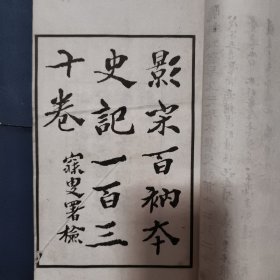 影宋百衲本
史記一百三
十卷
寐叟署檢